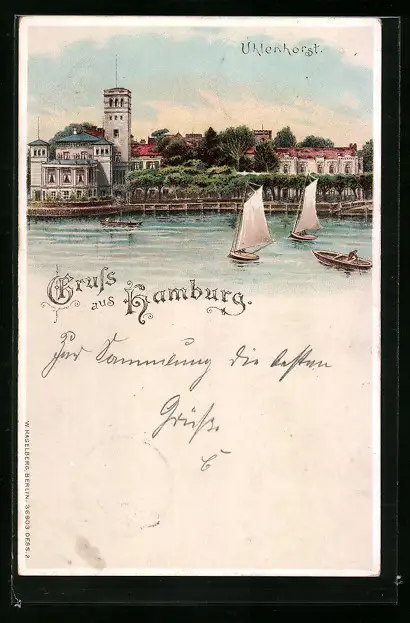 Uhlenhorst.
Gruss
aus Hamburg.
Zur Sammlung die besten
Grüße.
W. HAGELBERG, BERLIN. 36803 DESS. 2